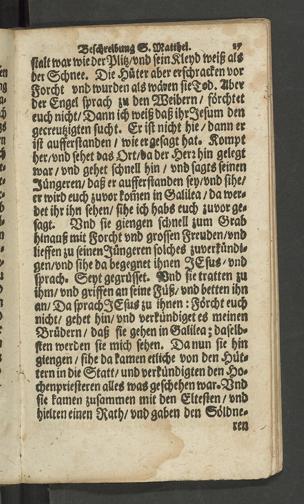 Beschreibung S. Matthei. 27
stalt war wie der Plitz/vnd sein Kleyd weiß als
der Schnee. Die Hüter aber erschracken vor
Forcht vnd wurden als wären sie Tod. Aber
der Engel sprach zu den Weibern / förchtet
euch nicht / Dann ich weiß daß ihr Jesum den
gecreutzigten sucht. Er ist nicht hie / dann er
ist aufferstanden / wie er gesagt hat. Kompt
her/vnd sehet das Ort/da der Herr hin gelegt
war / vnd gehet schnell hin / vnd sagts seinen
Jüngeren/ daß er aufferstanden sey/vnd sihe/
er wird euch zuvor kom̃en in Galilea / da wer-
det ihr ihn sehen/ sihe ich habs euch zuvor ge-
sagt. Vnd sie giengen schnell zum Grab
hinauß mit Forcht vnd grossen Freuden/vnd
lieffen zu seinen Jüngeren solches zuverkündi-
gen/vnd sihe da begegnet ihnen JEsus / vnd
sprach. Seyt gegrüsset. Vnd sie tratten zu
ihm / vnd griffen an seine Füß/ vnd betten ihn
an/ Da sprach JEsus zu ihnen : Förcht euch
nicht/ gehet hin/ vnd verkündiget es meinen
Brüdern / daß sie gehen in Galilea: daselb-
sten werden sie mich sehen. Da nun sie hin
giengen / sihe da kamen etliche von den Hüt-
tern in die Statt/ und verkündigten den Ho-
chenpriesteren alles was geschehen war. Vnd
sie kamen zusammen mit den Eltesten / vnd
hielten einen Rath/ vnd gaben den Söldne-
ren